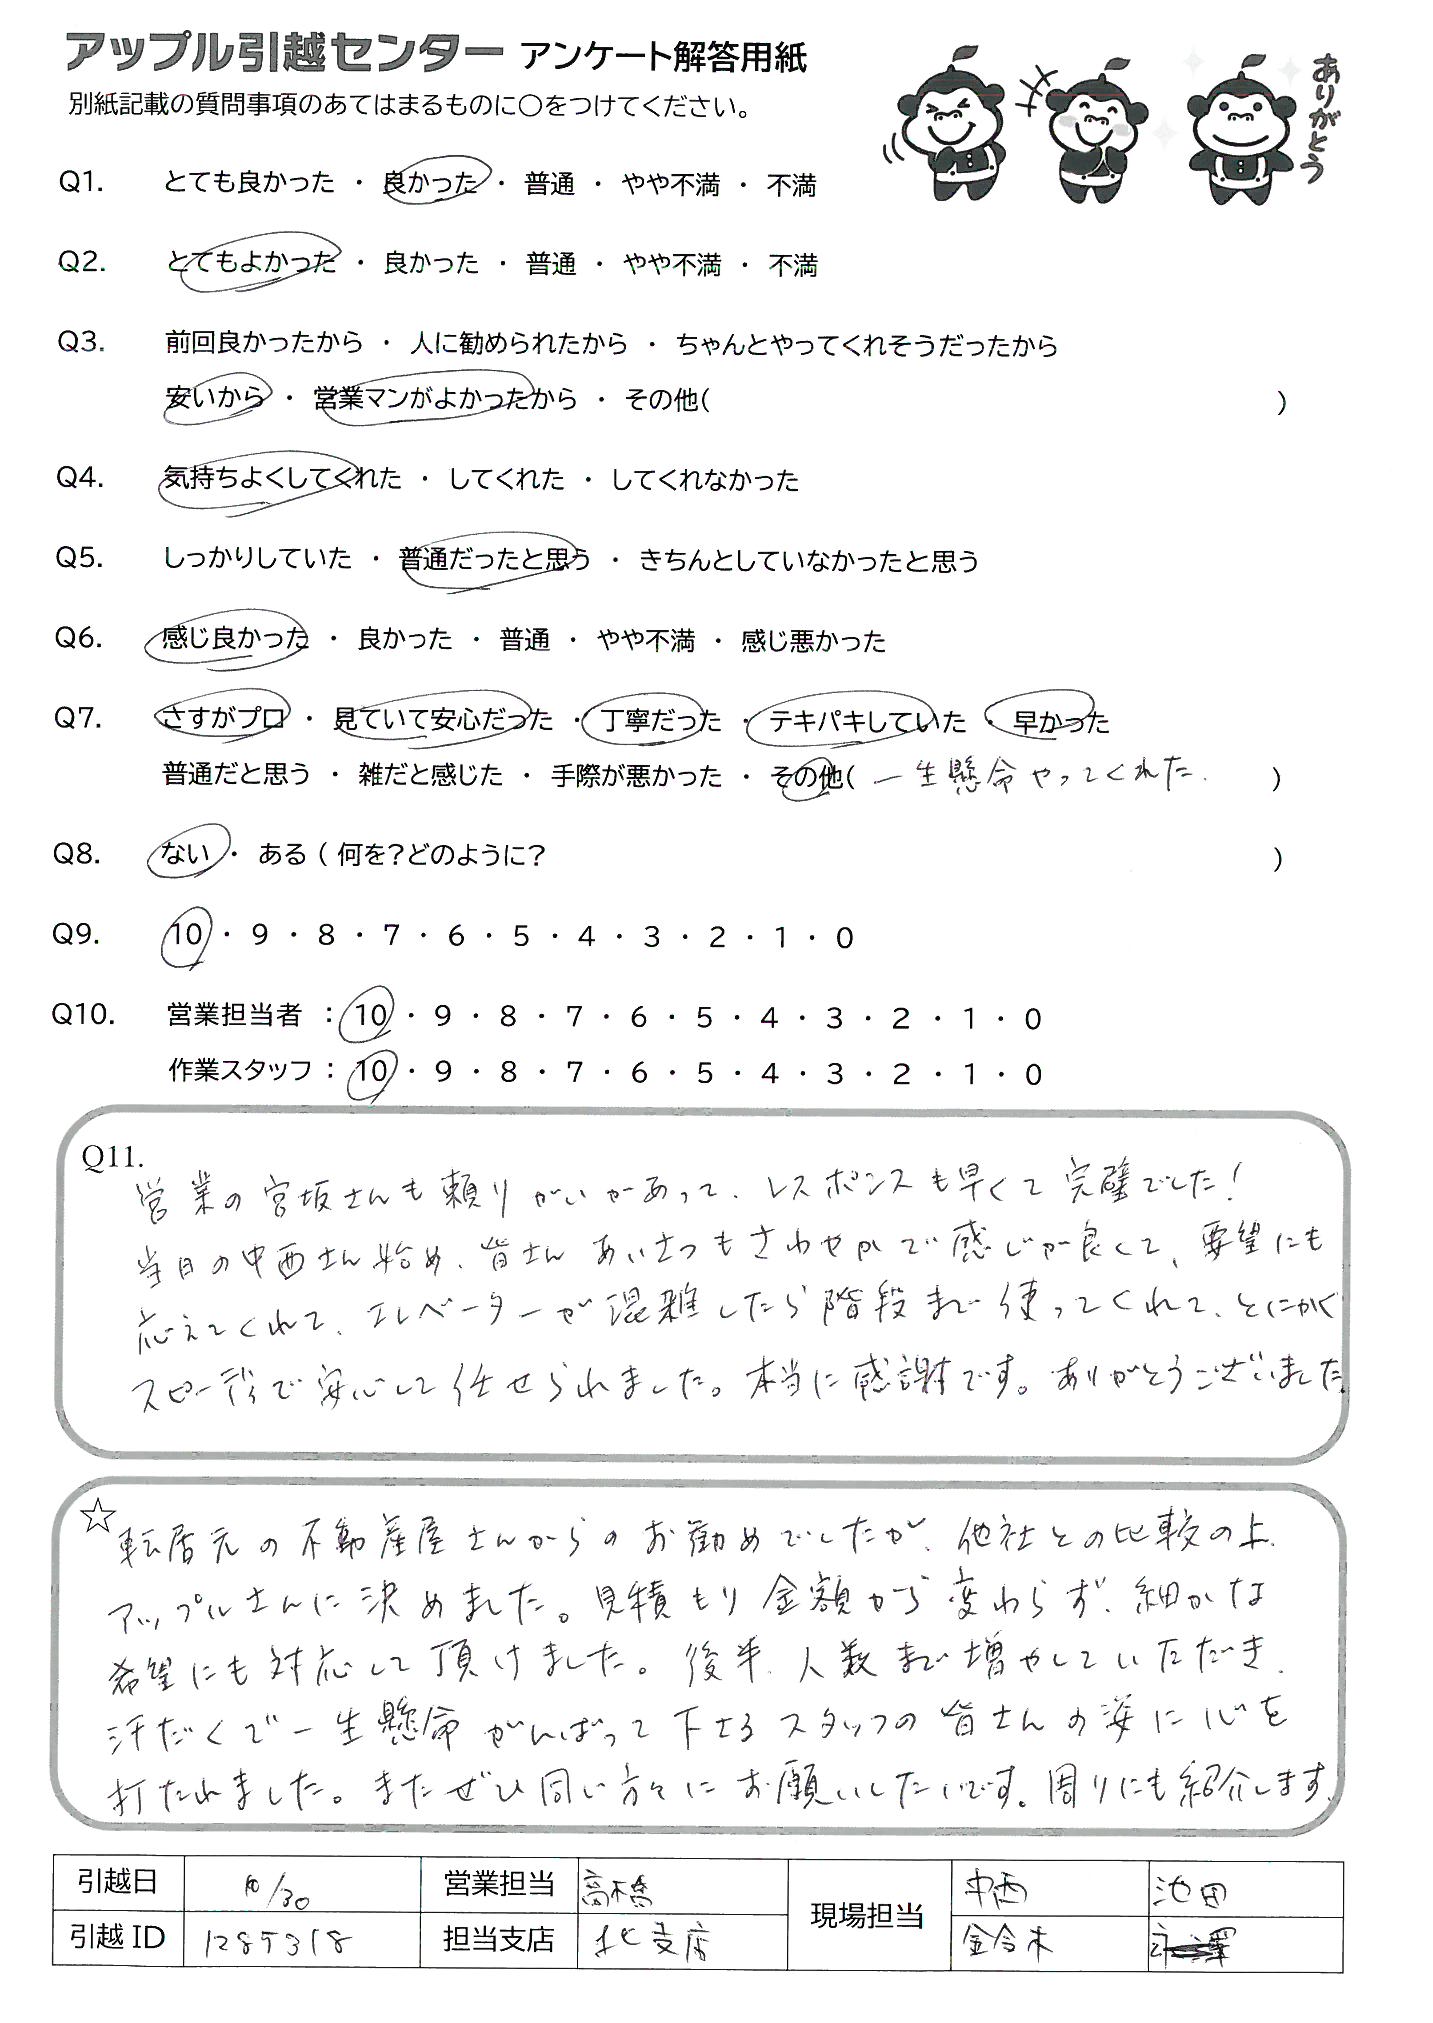 アップル引越センター アンケート解答用紙
別紙記載の質問事項のあてはまるものに○をつけてください。
ありがとう
Q1. とても良かった ・ 良かった ・ 普通 ・ やや不満 ・ 不満
Q2. とてもよかった ・ 良かった ・ 普通 ・ やや不満 ・ 不満
Q3. 前回良かったから ・ 人に勧められたから ・ ちゃんとやってくれそうだったから
安いから ・ 営業マンがよかったから ・ その他( )
Q4. 気持ちよくしてくれた ・ してくれた ・ してくれなかった
Q5. しっかりしていた ・ 普通だったと思う ・ きちんとしていなかったと思う
Q6. 感じ良かった ・ 良かった ・ 普通 ・ やや不満 ・ 感じ悪かった
Q7. さすがプロ ・ 見ていて安心だった ・ 丁寧だった ・ テキパキしていた ・ 早かった
普通だと思う ・ 雑だと感じた ・ 手際が悪かった ・ その他( 一生懸命やってくれた. )
Q8. ない ・ ある ( 何を?どのように? )
Q9. 10 ・ 9 ・ 8 ・ 7 ・ 6 ・ 5 ・ 4 ・ 3 ・ 2 ・ 1 ・ 0
Q10. 営業担当者 : 10 ・ 9 ・ 8 ・ 7 ・ 6 ・ 5 ・ 4 ・ 3 ・ 2 ・ 1 ・ 0
作業スタッフ : 10 ・ 9 ・ 8 ・ 7 ・ 6 ・ 5 ・ 4 ・ 3 ・ 2 ・ 1 ・ 0
Q11.
営業の宮坂さんも頼りがいがあって、レスポンスも早くて完璧でした!
当日の中西さん始め、皆さんあいさつもさわやかで感じが良くて、要望にも
応えてくれて、エレベーターが混雑したら階段まで使ってくれて、とにかく
スピーディで安心して任せられました。本当に感謝です。ありがとうございました
☆
転居元の不動産屋さんからのお勧めでしたが、他社との比較の上、
アップルさんに決めました。見積もり金額から変わらず、細かな
希望にも対応して頂けました。後半、人数まで増やしていただき、
汗だくで一生懸命がんばって下さるスタッフの皆さんの姿に心を
打たれました。またぜひ同じ方々にお願いしたいです。周りにも紹介します.
引越日 10/30 営業担当 高橋 現場担当 中西 池田
引越 ID 1285318 担当支店 北支店 金令木